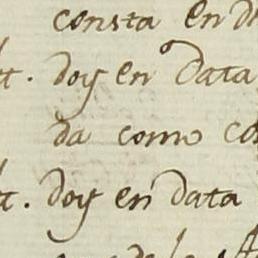 consta en
t. doy en Data
da como co
t. doy en data